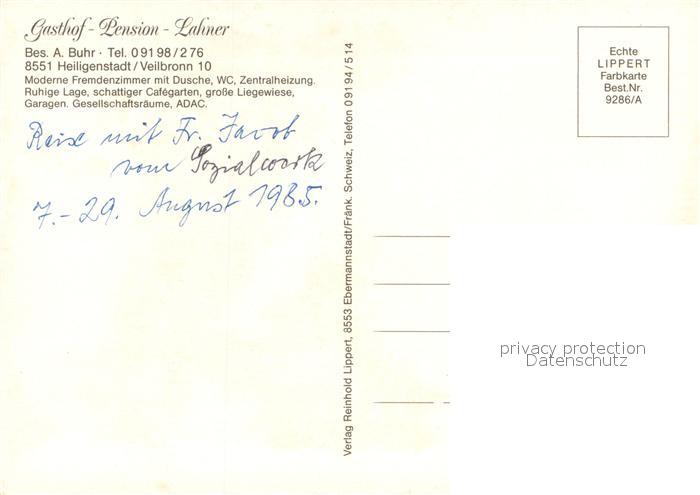 Gasthof - Pension - Lahner
Bes. A. Buhr · Tel. 0 91 98 / 2 76
8551 Heiligenstadt / Veilbronn 10
Moderne Fremdenzimmer mit Dusche, WC, Zentralheizung.
Ruhige Lage, schattiger Cafégarten, große Liegewiese,
Garagen. Gesellschaftsräume, ADAC.
Reise mit Fr. Jacob
vom Sozialwerk
7.- 29. August 1985.
Verlag Reinhold Lippert, 8553 Ebermannstadt/Fränk. Schweiz, Telefon 0 91 94 / 5 14
Echte
LIPPERT
Farbkarte
Best.Nr.
9286/A
privacy protection
Datenschutz